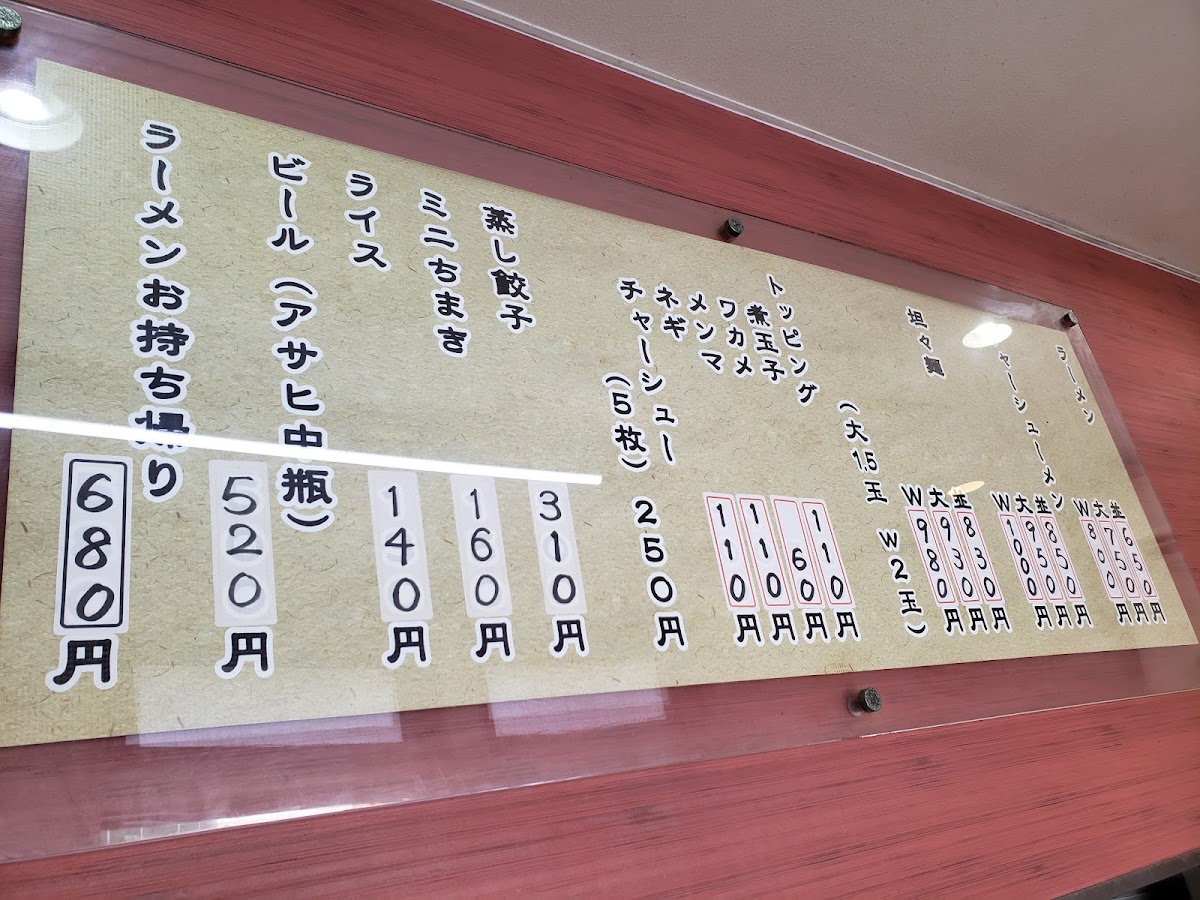 ラーメン
並 650円
大 750円
W 800円
ャーシューメン
並 850円
大 950円
W 1000円
坦々麺
並 830円
大 930円
W 980円
（大1.5玉 W2玉）
トッピング
煮玉子 110円
ワカメ 60円
メンマ 110円
ネギ 110円
チャーシュー
（5枚）250円
蒸し餃子 310円
ミニちまき 160円
ライス 140円
ビール（アサヒ中瓶） 520円
ラーメンお持ち帰り 680円